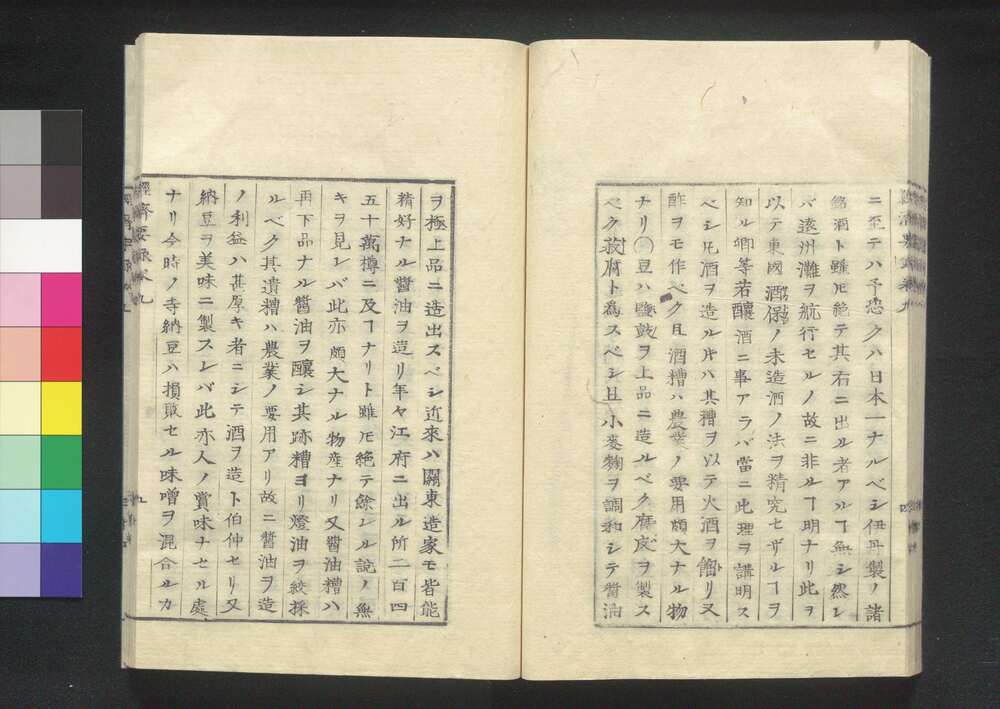 ニ至テハ予恐クハ日本一ナルベシ伊丹製ノ諸
銘酒ト雖𪜈絶テ其右ニ出ル者アルヿ無シ然レ
バ遠州灘ヲ航行セルノ故ニ非ルヿ明ナリ此ヲ
以テ東國酒保ノ未造酒ノ法ヲ精究セザルヿヲ
知ル卿等若釀酒ニ事アラバ當ニ此理ヲ講明ス
ベシ凡酒ヲ造ル片ハ其糟ヲ以テ火酒ヲ餾リ又
酢ヲモ作ベク且酒糟ハ農業ノ要用頗大ナル物
ナリ〇豆ハ鹽鼓ヲ上品ニ造ルベク腐皮ヲ製ス
ベク菽腐ト為スベシ且小麥麹ヲ調和シテ醤油
ヲ極上品ニ造出スベシ近來ハ關東造家モ皆能
精好ナル醤油ヲ造リ年々江府ニ出ル所二百四
五十萬樽ニ及フヿナリト雖𪜈絶テ餘レル說ノ無
キヲ見レバ此亦頗大ナル物産ナリ又醤油糟ハ
再下品ナル醤油ヲ釀シ其跡糟ヨリ燈油ヲ絞採
ルベク其遺糟ハ農業ノ要用アリ故ニ醤油ヲ造
ノ利益ハ甚厚キ者ニシテ酒ヲ造ト伯仲セリ又
納豆ヲ美味ニ製スレバ此亦人ノ賞味ナセル處
ナリ今時ノ寺納豆ハ損敗セル味噌ヲ混合ルカ
經濟要録卷九
九